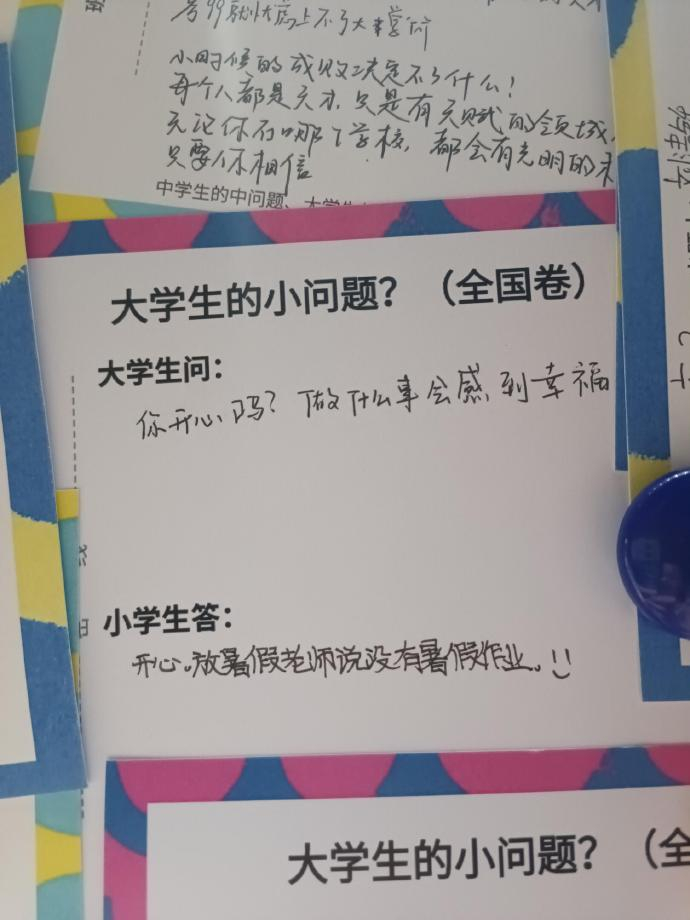 考99就快高上不了大学
小时候的成败决定不了什么！
每个人都是天才，只是有天赋的领域
无论你在哪个学校，都会有光明的未
只要你相信
中学生的中问题、大学生
大学生的小问题？（全国卷）
大学生问：
你开心吗？做什么事会感到幸福
小学生答：
开心。放暑假老师说没有暑假作业。
大学生的小问题？（全